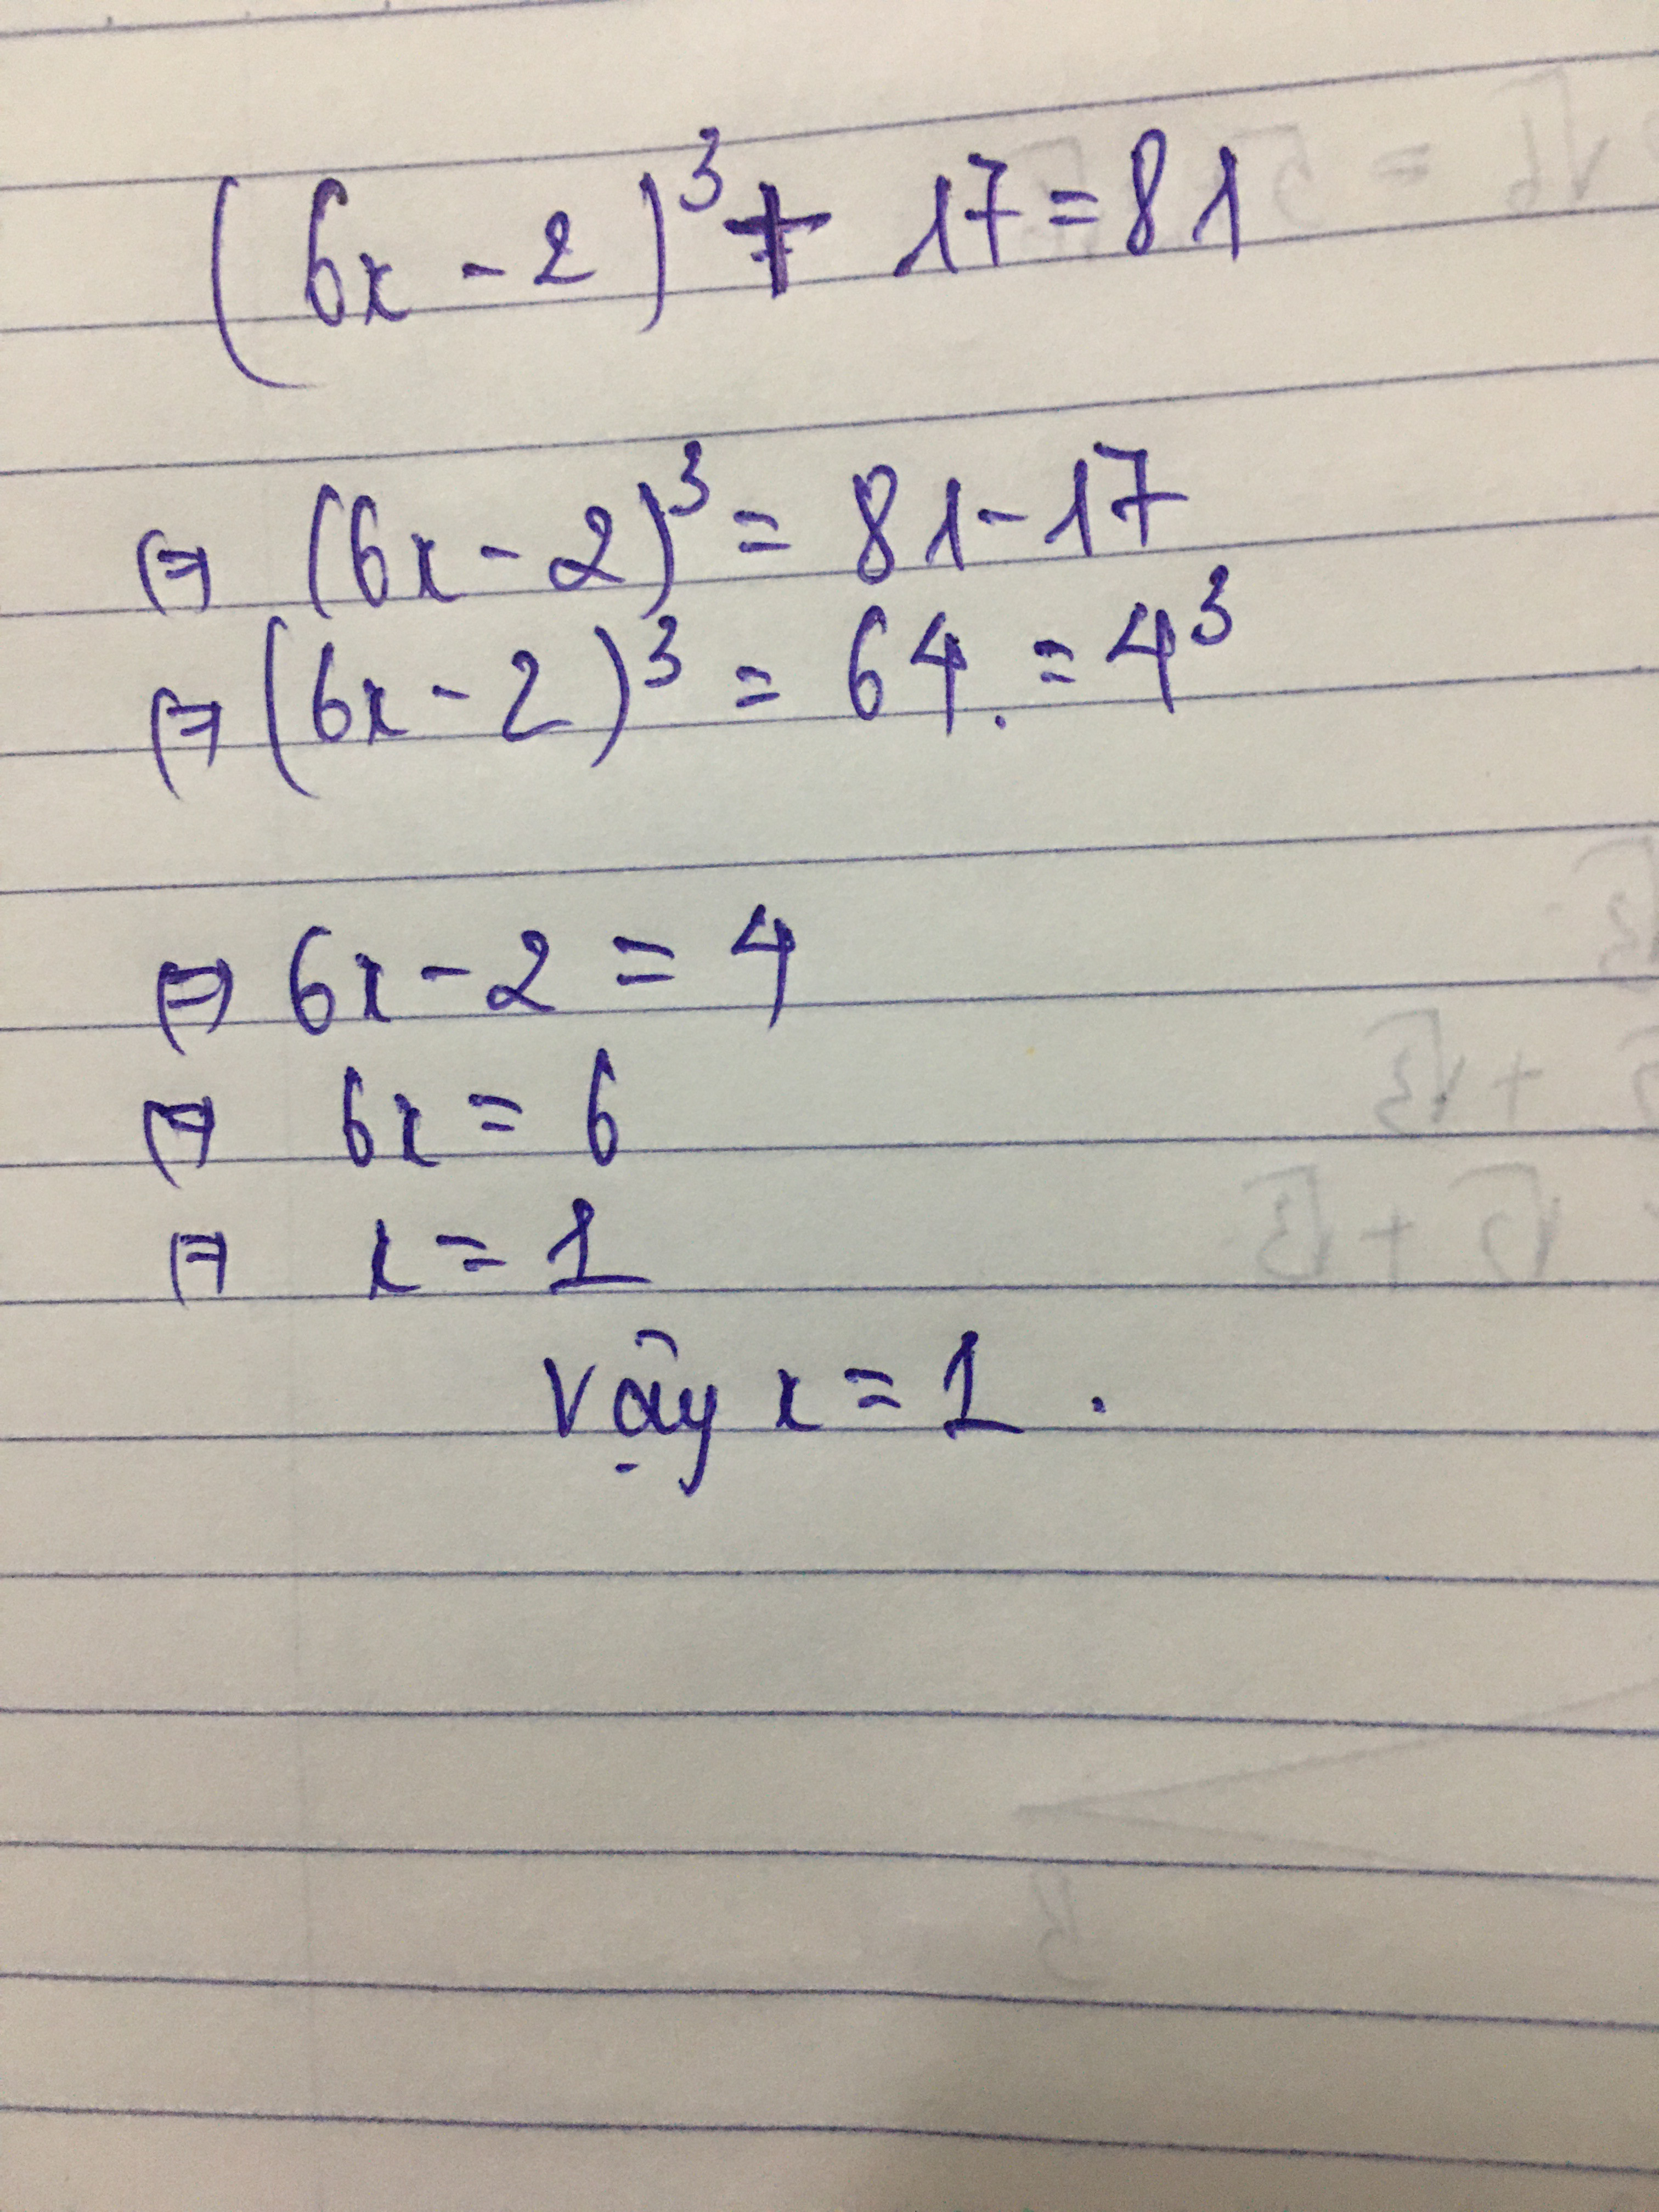 (6x - 2)³ + 17 = 81
⇔ (6x - 2)³ = 81 - 17
⇔ (6x - 2)³ = 64. = 4³
⇔ 6x - 2 = 4
⇔ 6x = 6
⇔ x = 1
Vậy x = 1.